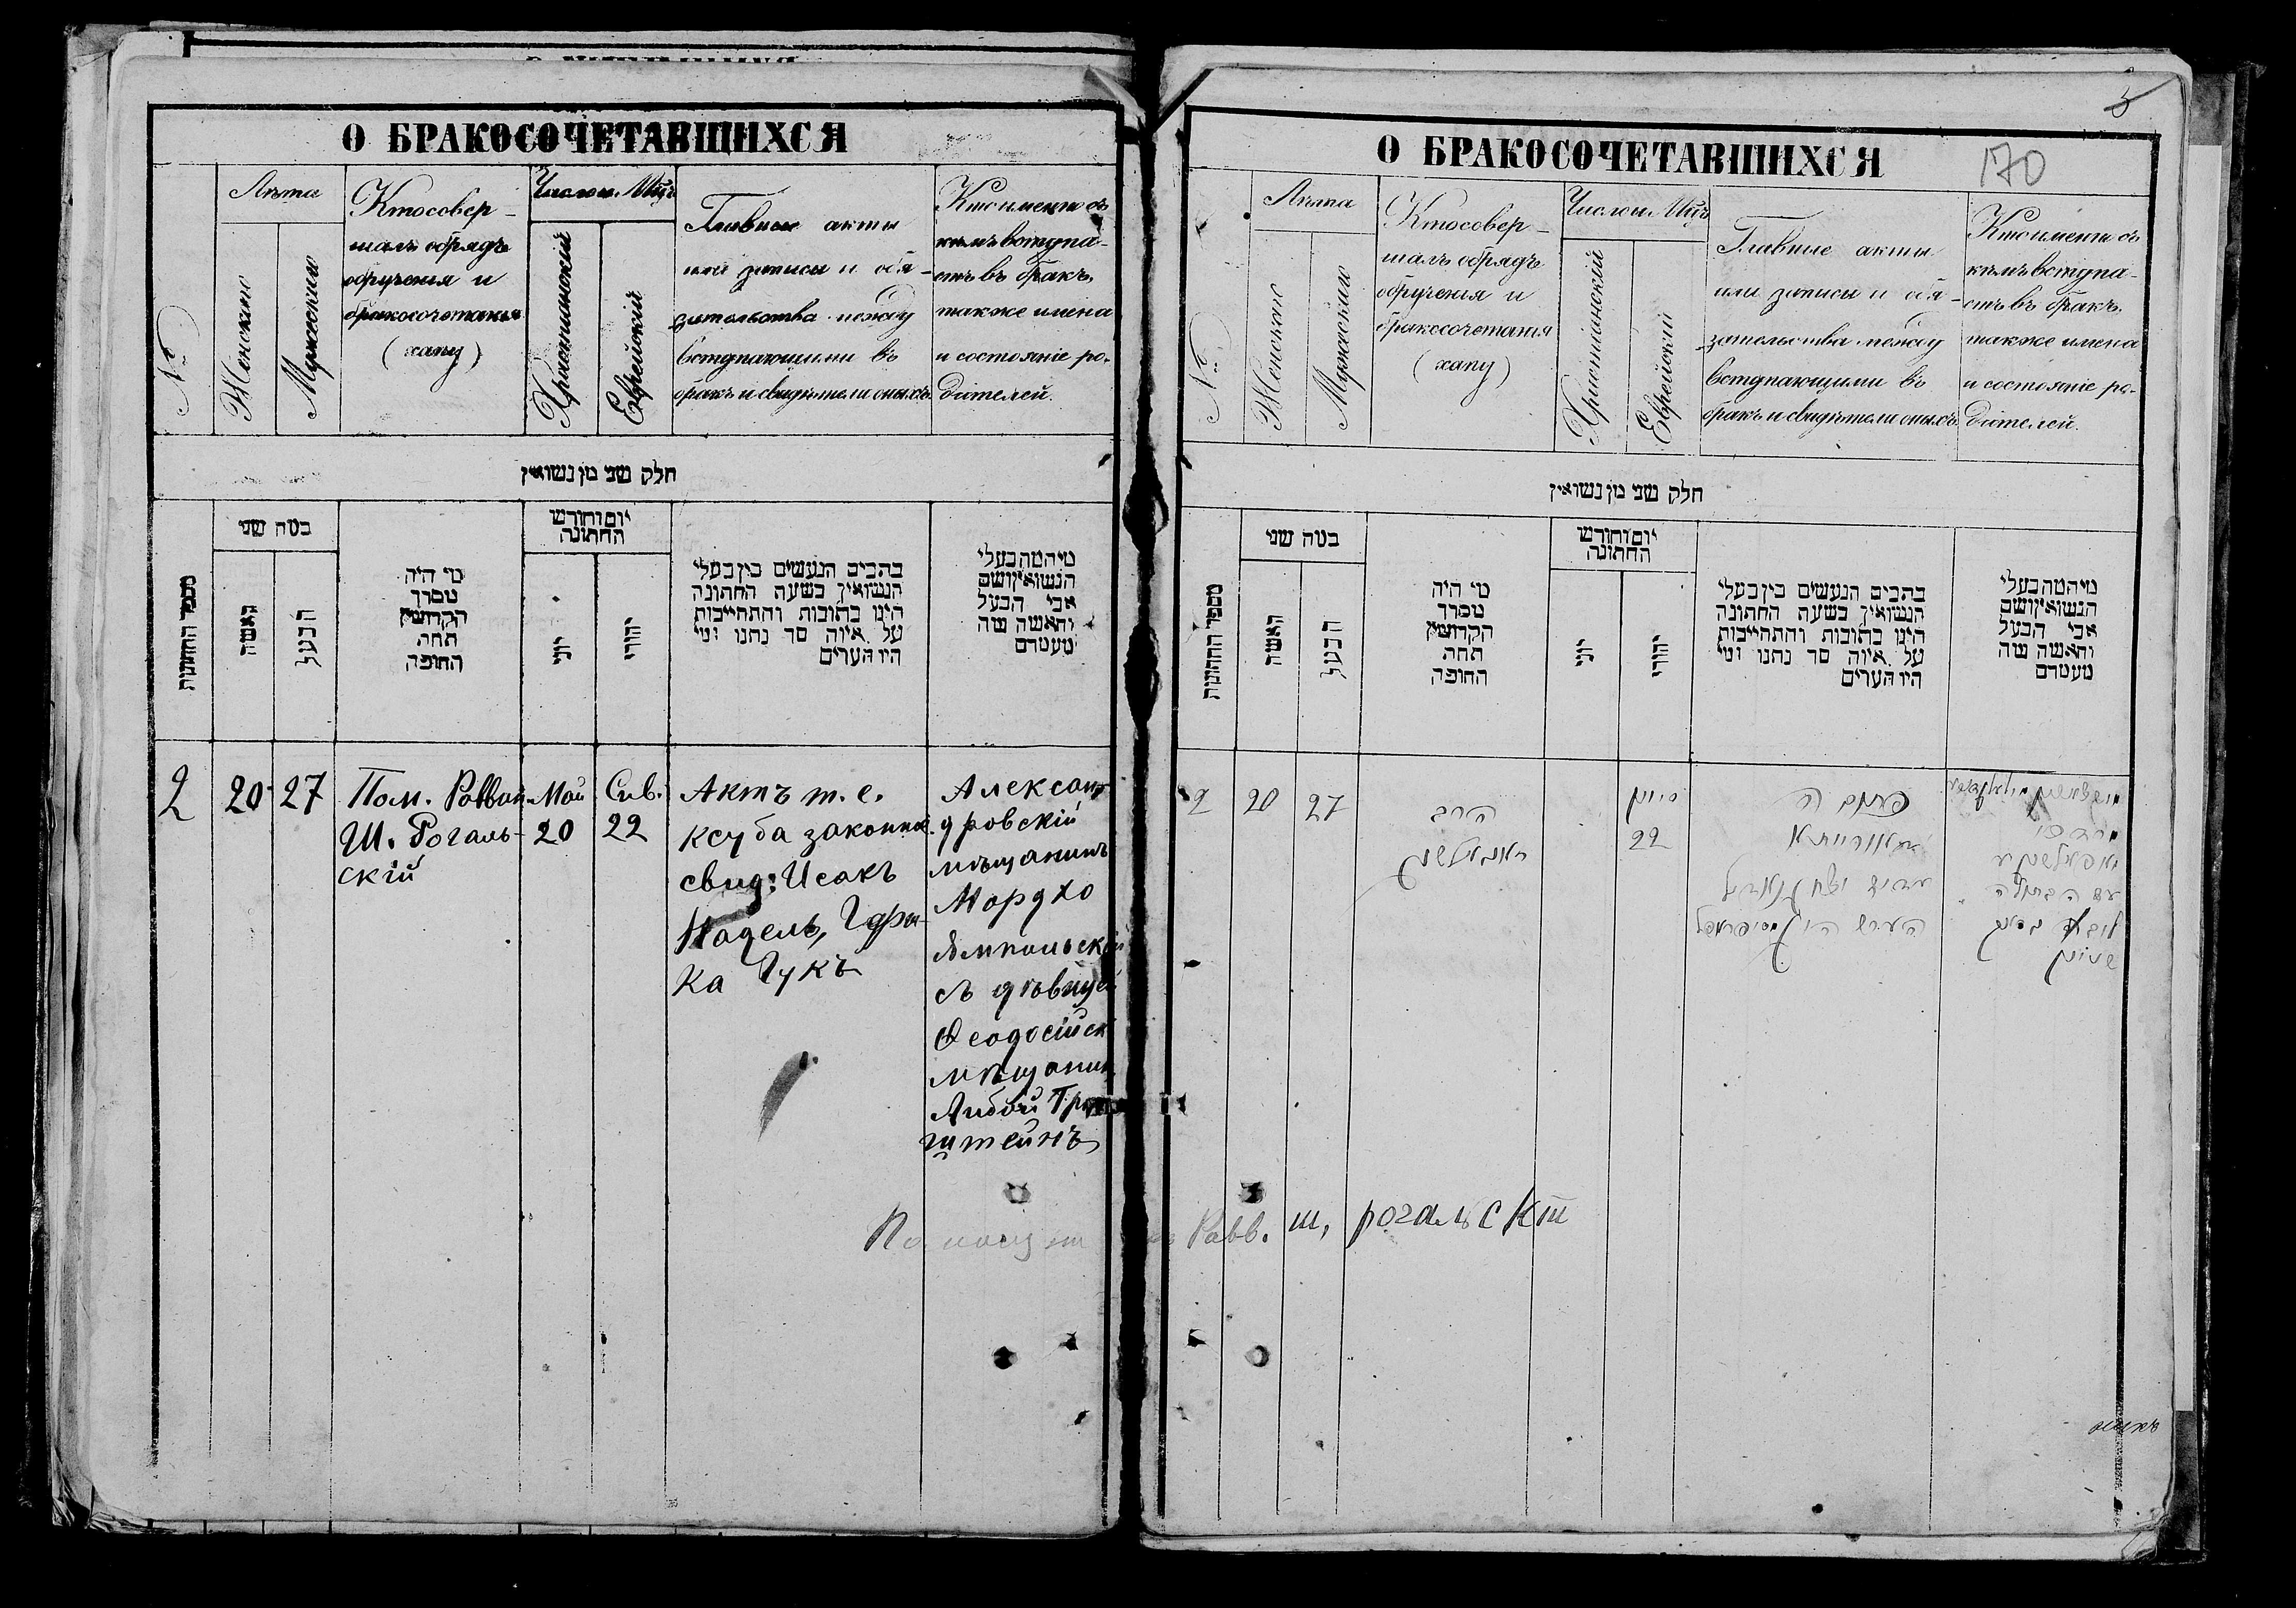 О БРАКОСОЧЕТАВШИХСЯ
№
Лѣта
Женскаго
Мужескаго
Кто совер-
шалъ обрядъ
обрученія и
бракосочетанія
(хапу)
Число и Мѣц.
Христіанскій
Еврейскій
Главные акты
или записи и обя-
зательства между
вступающими въ
бракъ и свидѣтели оныхъ.
Кто именно съ
кѣмъ вступа-
етъ въ бракъ.
также имена
и состояніе ро-
дителей.
חלק שני מן נשואין
מספר החתונות
כמה שני
האשה
הבעל
מי היה
מסדר
הקדושין
תחת
החופה
יום וחודש
החתונה
יוני
יהודי
כתבים הנעשים בין בעלי
הנשואין בשעת החתונה
היינו כתובות והתחייבות
על איזה סך נתנו ומי
היו העדים
מי המה בעלי
הנשואין ושם
אבי הבעל
והאשה
מעמדם
2
20
27
Пом. Раввин
Ш. Рогаль-
скій
Май
20
Сив.
22
Актъ т. е.
ксуба законна.
свид: Исакъ
Надель,
ка Гукъ
Алексан
дровскій
мѣщанинъ
Мордко
Ямпольскій
съ дѣвицей
Ѳеодосійск
мѣщанин
Либой
штейнъ
Помощн
О БРАКОСОЧЕТАВШИХСЯ
3
170
№
Лѣта
Женскаго
Мужескаго
Кто совер-
шалъ обрядъ
обрученія и
бракосочетанія
(хапу)
Число и Мѣц
Христіанскій
Еврейскій
Главные акты
или записи и обя-
зательства между
вступающими въ
бракъ и свидѣтели оныхъ
Кто именно съ
кѣмъ вступа-
етъ въ бракъ.
также имена
и состояніе ро-
дителей.
חלק שני מן נשואין
מספר החתונות
כמה שני
האשה
הבעל
מי היה
מסדר
הקדושין
תחת
החופה
יום וחודש
החתונה
יוני
יהודי
כתבים הנעשים בין בעלי
הנשואין בשעת החתונה
היינו כתובות והתחייבות
על איזה סך נתנו ומי
היו העדים
מי המה בעלי
הנשואין ושם
אבי הבעל
והאשה
מעמדם
2
20
27
הרב
ראגאלשקי
סיון
22
דאורייתא
מרדכי
יאמפאלשקי
עם הבתולה
Равв. Ш, рогальскій